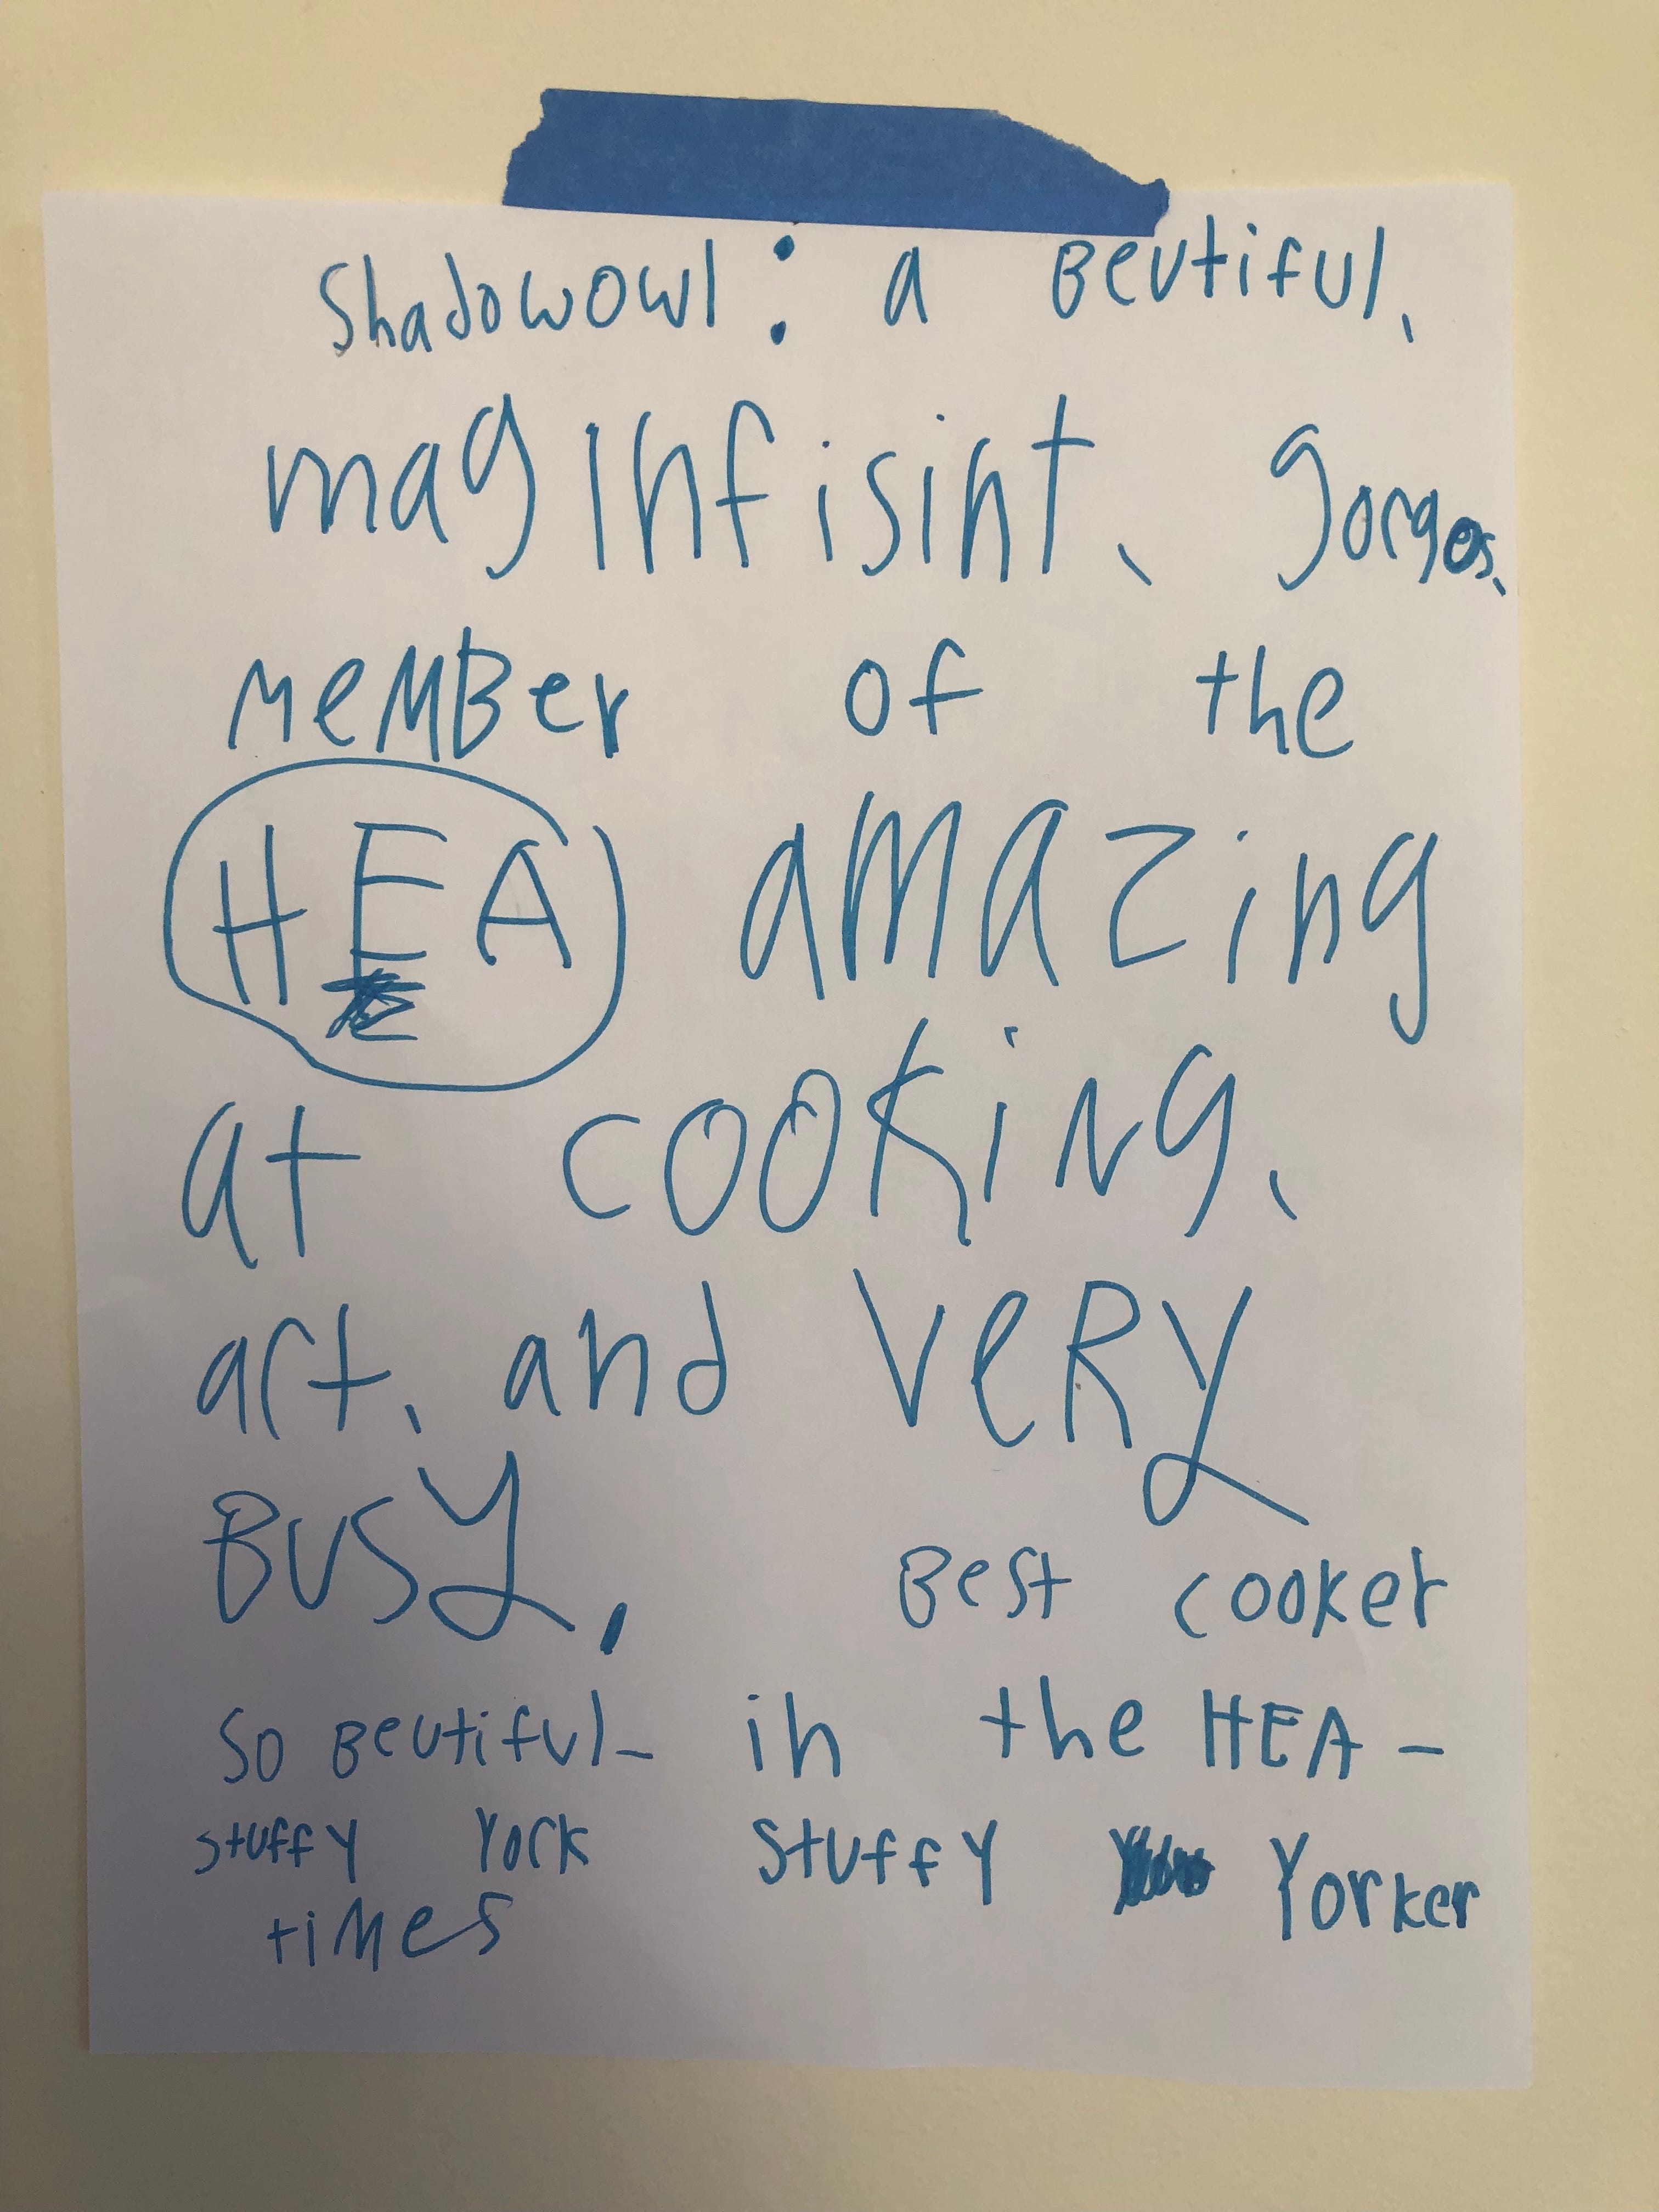 Shadowowl: a Beutiful,
maginfisint, gorges,
MeMBer of the
HEA amazing
at cooking,
art, and VeRy
BUSY.
Best cooker
So Beutiful- in the HEA -
stuffy York stuffy Yorker
times